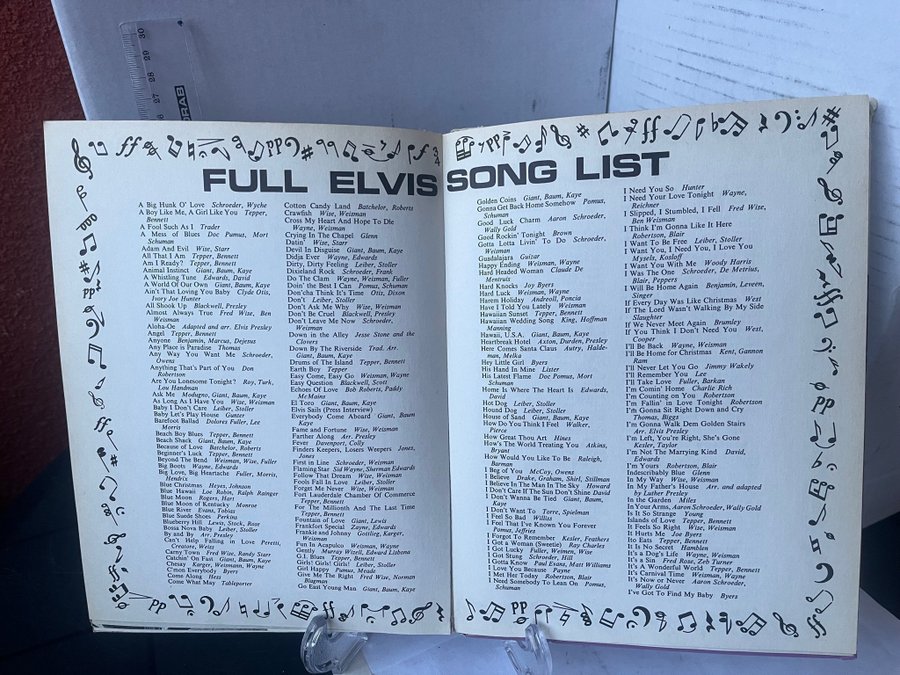 30
29
28
27
26
FULL ELVIS SONG LIST
A Big Hunk O' Love Schroeder, Wyche
A Boy Like Me, A Girl Like You Tepper,
Bennett
A Fool Such As I Trader
A Mess of Blues Doc Pumus, Mort
Schuman
Adam And Evil Wise, Starr
All That I Am Tepper, Bennett
Am I Ready? Tepper, Bennett
Animal Instinct Giant, Baum, Kaye
A Whistling Tune Edwards, David
A World Of Our Own Giant, Baum, Kaye
Ain't That Loving You Baby Clyde Otis,
Ivory Joe Hunter
All Shook Up Blackwell, Presley
Almost Always True Fred Wise, Ben
Weisman
Aloha-Oe Adapted and arr. Elvis Presley
Angel Tepper, Bennett
Anyone Benjamin, Marcus, Dejesus
Any Place is Paradise Thomas
Any Way You Want Me Schroeder,
Owens
Anything That's Part of You Don
Robertson
Are You Lonesome Tonight? Roy, Turk,
Lou Handman
Ask Me Modugno, Giant, Baum, Kaye
As Long As I Have You Wise, Weisman
Baby I Don't Care Leiber, Stoller
Baby Let's Play House Gunter
Barefoot Ballad Dolores Fuller, Lee
Morris
Beach Boy Blues Tepper, Bennett
Beach Shack Giant, Baum, Kaye
Because of Love Batchelor, Roberts
Beginner's Luck Tepper, Bennett
Beyond The Bend Weisman, Wise, Fuller
Big Boots Wayne, Edwards
Big Love, Big Heartache Fuller, Morris,
Hendrix
Blue Christmas Heyes, Johnson
Blue Hawaii Leo Robin, Ralph Rainger
Blue Moon Rogers, Hart
Blue Moon of Kentucky Monroe
Blue River Evans, Tobias
Blue Suede Shoes Perkins
Blueberry Hill Lewis, Stock, Rose
Bossa Nova Baby Leiber, Stoller
By and By Arr. Presley
Can't Help Falling in Love Peretti,
Creatore, Weiss
Carny Town Fred Wise, Randy Starr
Catchin' On Fast Giant, Baum, Kaye
Chesay Karger, Weismann, Wayne
C'mon Everybody Byers
Come Along Hess
Come What May Tableporter
Cotton Candy Land Batchelor, Roberts
Crawfish Wise, Weisman
Cross My Heart And Hope To Die
Wayne, Weisman
Crying In The Chapel Glenn
Datin' Wise, Starr
Devil In Disguise Giant, Baum, Kaye
Didja Ever Wayne, Edwards
Dirty, Dirty Feeling Leiber, Stoller
Dixieland Rock Schroeder, Frank
Do The Clam Wayne, Weisman, Fuller
Doin' the Best I Can Pomus, Schuman
Don'cha Think It's Time Otis, Dixon
Don't Leiber, Stoller
Don't Ask Me Why Wise, Weisman
Don't Be Cruel Blackwell, Presley
Don't Leave Me Now Schroeder,
Weisman
Down in the Alley Jesse Stone and the
Clovers
Down By The Riverside Trad. Arr.
Giant, Baum, Kaye
Drums of The Island Tepper, Bennett
Earth Boy Tepper
Easy Come, Easy Go Weisman, Wayne
Easy Question Blackwell, Scott
Echoes Of Love Bob Roberts, Paddy
McMains
El Toro Giant, Baum, Kaye
Elvis Sails (Press Interview)
Everybody Come Aboard Giant, Baum
Kaye
Fame and Fortune Wise, Weisman
Farther Along Arr. Presley
Fever Davenport, Colly
Finders Keepers, Losers Weepers Jones,
Jones
First in Line Schroeder, Weisman
Flaming Star Sid Wayne, Sherman Edwards
Follow That Dream Wise, Weisman
Fools Fall In Love Leiber, Stoller
Forget Me Never Wise, Weisman
Fort Lauderdale Chamber Of Commerce
Tepper, Bennett
For The Millionth And The Last Time
Tepper, Bennett
Fountain of Love Giant, Lewis
Frankfort Special Zayne, Edwards
Frankie and Johnny Gottlieg, Karger,
Weisman
Fun In Acapulco Weisman, Wayne
Gently Murray Wizell, Edward Lisbona
G.I. Blues Tepper, Bennett
Girls! Girls! Girls! Leiber, Stoller
Girl Happy Pomus, Meade
Give Me The Right Fred Wise, Norman
Blagman
Go East Young Man Giant, Baum, Kaye
Golden Coins Giant, Baum, Kaye
Gonna Get Back Home Somehow Pomus,
Schuman
Good Luck Charm Aaron Schroeder,
Wally Gold
Good Rockin' Tonight Brown
Gotta Lotta Livin' To Do Schroeder,
Weisman
Guadalajara Guizar
Happy Ending Weisman, Wayne
Hard Headed Woman Claude De
Mentruis
Hard Knocks Joy Byers
Hard Luck Weisman, Wayne
Harem Holiday Andreoli, Poncia
Have I Told You Lately Weisman
Hawaiian Sunset Tepper, Bennett
Hawaiian Wedding Song King, Hoffman
Manning
Hawaii, U.S.A. Giant, Baum, Kaye
Heartbreak Hotel Axton, Durden, Presley
Here Comes Santa Claus Autry, Halde-
man, Melka
Hey Little Girl Byers
His Hand In Mine Lister
His Latest Flame Doc Pomus, Mort
Schuman
Home Is Where The Heart Is Edwards,
David
Hot Dog Leiber, Stoller
Hound Dog Leiber, Stoller
House of Sand Giant, Baum, Kaye
How Do You Think I Feel Walker,
Pierce
How Great Thou Art Hines
How's The World Treating You Atkins,
Bryant
How Would You Like To Be Raleigh,
Barman
I Beg of You McCoy, Owens
I Believe Drake, Graham, Shirl, Stillman
I Believe In The Man In The Sky Howard
I Don't Care If The Sun Don't Shine David
I Don't Wanna Be Tied Giant, Baum,
Kaye
I Don't Want To Torre, Spielman
I Feel So Bad Willis
I Feel That I've Known You Forever
Pomus, Jeffries
I Forgot To Remember Kesler, Feathers
I Got a Woman (Sweetie) Ray Charles
I Got Lucky Fuller, Weiman, Wise
I Got Stung Schroeder, Hill
I Gotta Know Paul Evans, Matt Williams
I Love You Because Payne
I Met Her Today Robertson, Blair
I Need Somebody to Lean On Pomus,
Schuman
I Need You So Hunter
I Need Your Love Tonight Wayne,
Reichner
I Slipped, I Stumbled, I Fell Fred Wise,
Ben Weisman
I Think I'm Gonna Like It Here
Robertson, Blair
I Want To Be Free Leiber, Stoller
I Want You, I Need You, I Love You
Mysels, Kosloff
I Want You With Me Woody Harris
I Was The One Schroeder, De Metrius,
Blair, Peppers
I Will Be Home Again Benjamin, Leveen,
Singer
If Every Day Was Like Christmas West
If The Lord Wasn't Walking By My Side
Slaughter
If We Never Meet Again Brumley
If You Think I Don't Need You West,
Cooper
I'll Be Back Wayne, Weisman
I'll Be Home for Christmas Kent, Gannon
Ram
I'll Never Let You Go Jimmy Wakely
I'll Remember You Lee
I'll Take Love Fuller, Barkan
I'm Comin' Home Charlie Rich
I'm Counting on You Robertson
I'm Fallin' in Love Tonight Robertson
I'm Gonna Sit Right Down and Cry
Thomas, Biggs
I'm Gonna Walk Dem Golden Stairs
Arr. Elvis Presley
I'm Left, You're Right, She's Gone
Kesler, Taylor
I'm Not The Marrying Kind David,
Edwards
I'm Yours Robertson, Blair
Indescribably Blue Glenn
In My Way Wise, Weisman
In My Father's House Arr. and adapted
by Luther Presley
In the Garden Miles
In Your Arms, Aaron Schroeder, Wally Gold
Is It So Strange Young
Islands of Love Tepper, Bennett
It Feels So Right Wise, Weisman
It Hurts Me Joy Byers
Ito Eats Tepper, Bennett
It Is No Secret Hamblen
It's a Dog's Life Wayne, Weisman
It's a Sin Fred Rose, Zeb Turner
It's A Wonderful World Tepper, Bennett
It's Carnival Time Weisman, Wayne
It's Now or Never Aaron Schroeder,
Wally Gold
I've Got To Find My Baby Byers